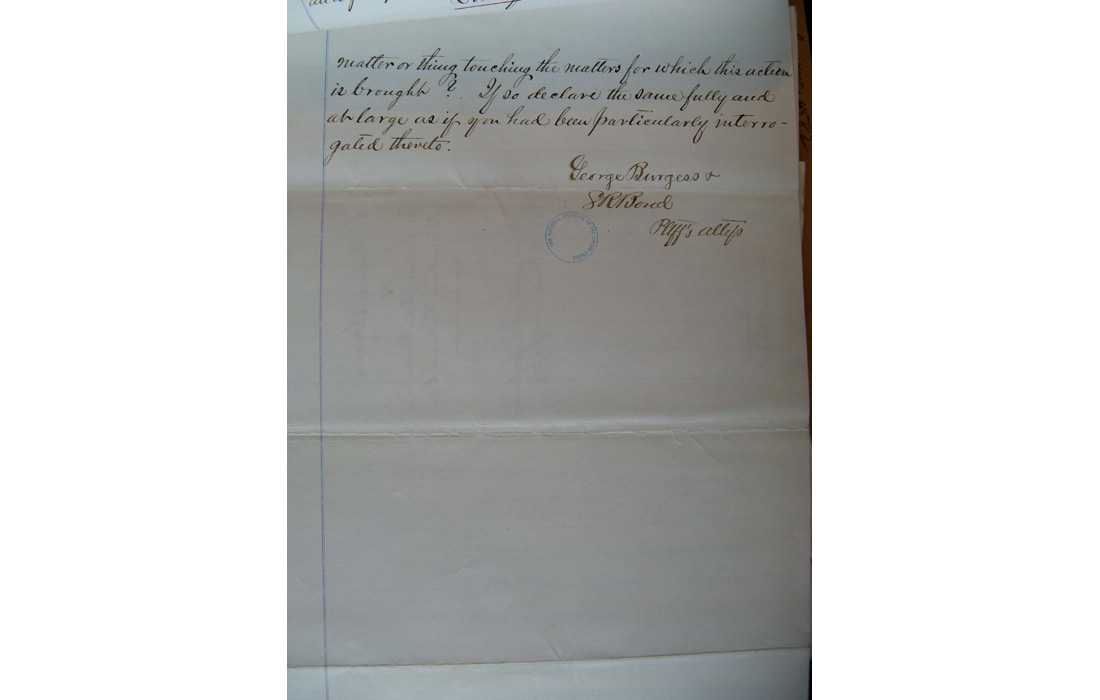 matter or thing touching the matters for which this action
is brought? If so declare the same fully and
at large as if you had been particularly interro-
gated thereto.
George Burgess &
S R Bond
Pltff's attys